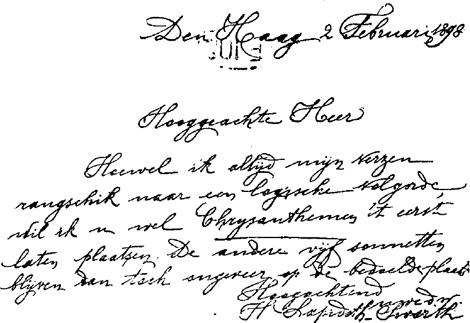 Den Haag 2 Februari 1898
Hooggeachte Heer
Hoewel ik altijd mijn verzen
rangschik naar een logische volgorde,
wil ik u wel Chrysanthemen 't eerst
laten plaatsen. De andere vijf sonnetten
blijven dan toch ongeveer op de bedoelde plaats
Hoogachtend
uwe dv
H Lapidoth-Swarth